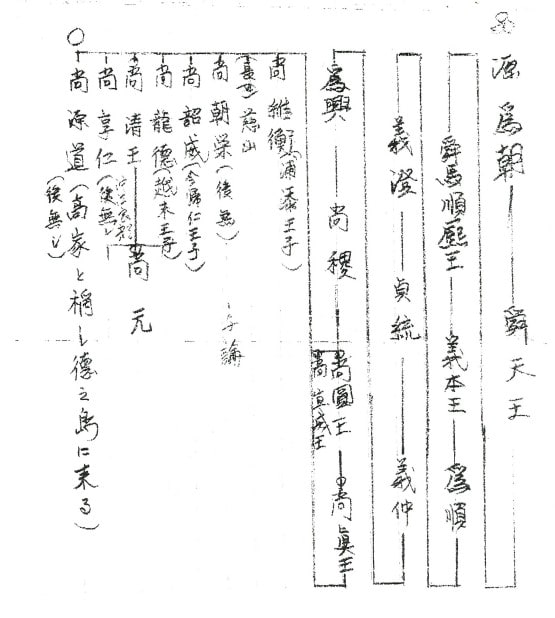 源爲朝 舜天王
舜馬順熙王 義本王 爲順
義澄 貞統 義仲
爲興 尚稷 尚圓王 尚眞王
尚宣威王
尚維衡(浦添王子)
尚朝榮(後無)
尚韶威(今帰仁王子)
尚龍德(越来王子)
尚清王 尚元
尚享仁(後無し)
尚源道(高家と稱し德之島に来る)
(後無し)